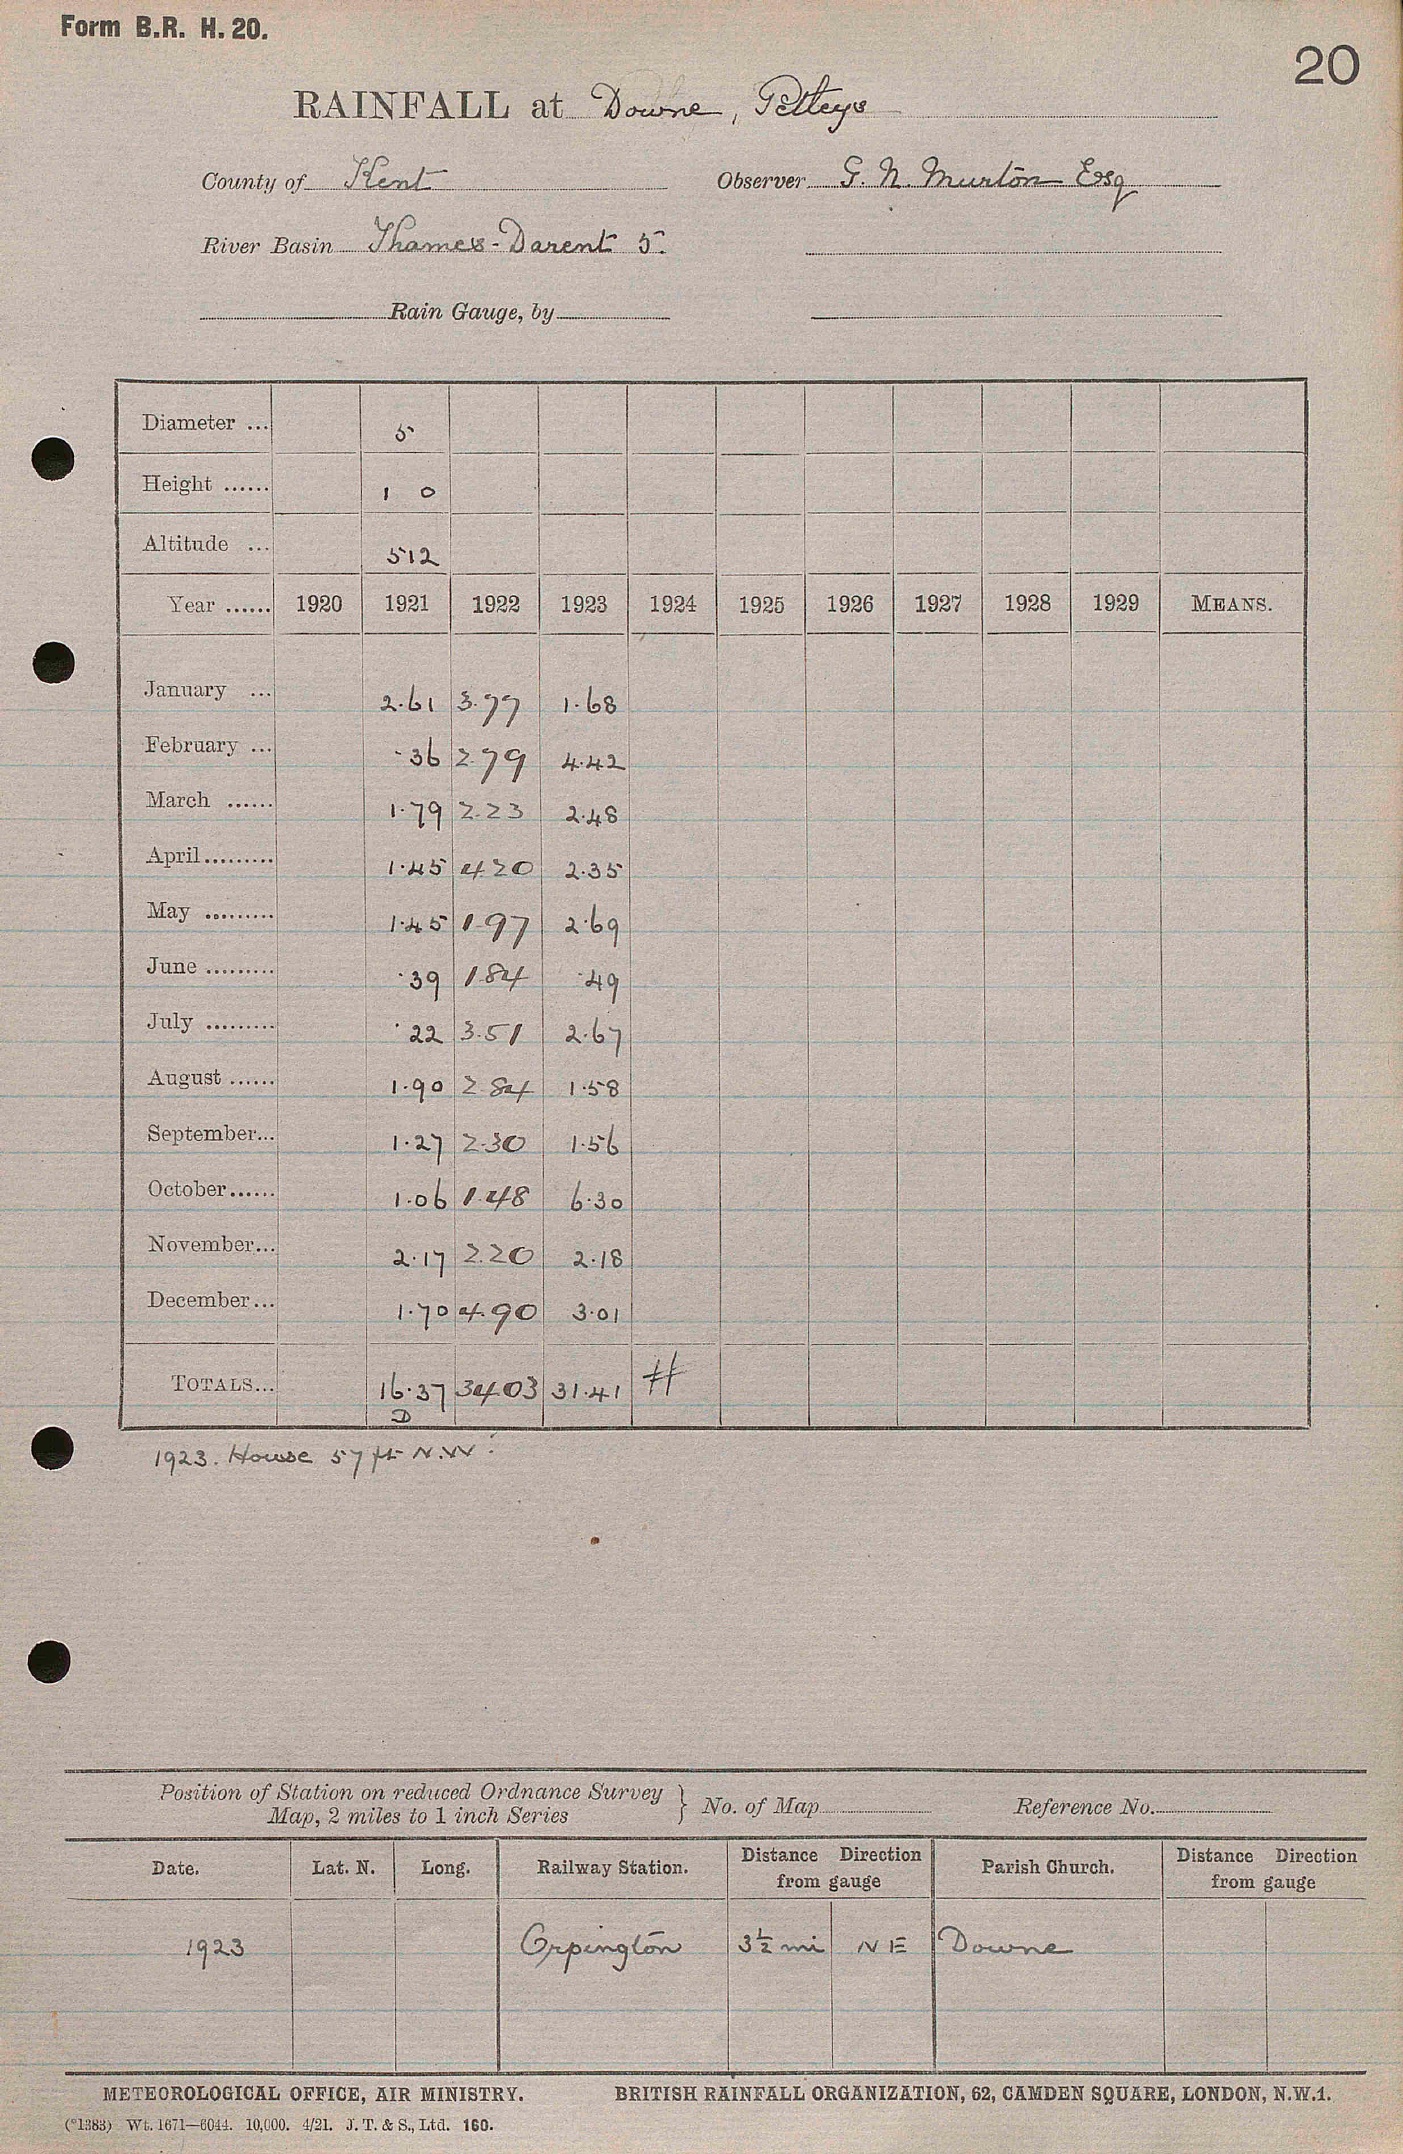 Form B.R. H. 20.
20
RAINFALL at Downe, Petleys
County of Kent Observer G. N. Murton Esq
River Basin Thames - Darent 5.
Rain Gauge, by
Diameter ... 5
Height ...... 1 0
Altitude ... 512
Year ...... 1920 1921 1922 1923 1924 1925 1926 1927 1928 1929 MEANS.
January ... 2.61 3.77 1.68
February ... .36 2.79 4.42
March ...... 1.79 2.23 2.48
April ......... 1.45 4.20 2.35
May ......... 1.45 1.97 2.69
June ......... .39 1.84 .49
July ......... .22 3.51 2.67
August ...... 1.90 2.84 1.58
September... 1.27 2.30 1.56
October...... 1.06 1.48 6.30
November... 2.17 2.20 2.18
December... 1.70 4.90 3.01
TOTALS... 16.37 34.03 31.41 #
D
1923. House 57 ft N.W.
Position of Station on reduced Ordnance Survey
Map, 2 miles to 1 inch Series } No. of Map Reference No.
Date. Lat. N. Long. Railway Station. Distance Direction from gauge Parish Church. Distance Direction from gauge
1923 Orpington 3½ mi NE Downe
METEOROLOGICAL OFFICE, AIR MINISTRY. BRITISH RAINFALL ORGANIZATION, 62, CAMDEN SQUARE, LONDON, N.W.1.
(*1383) Wt. 1671—6044. 10,000. 4/21. J. T. & S., Ltd. 160.